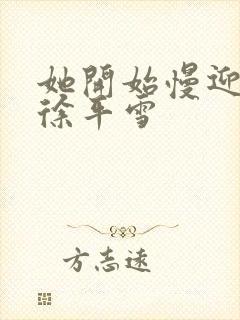 她開始慢迎
徐平雪
方志遠